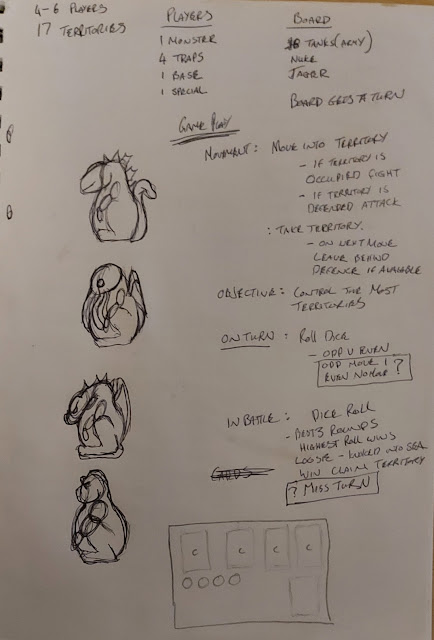 4-6 PLAYERS
17 TERRITORIES
PLAYERS
1 MONSTER
4 TRAPS
1 BASE
1 SPECIAL
BOARD
TANKS (ARMY)
NUKE
JAGER
BOARD GETS A TURN
GAME PLAY
MOVEMENT : MOVE INTO TERRITORY
- IF TERRITORY IS
OCCUPIED FIGHT
- IF TERRITORY IS
DEFENDED ATTACK
: TAKE TERRITORY.
- ON NEXT MOVE
LEAVE BEHIND
DEFENCE IF AVAILABLE
OBJECTIVE : CONTROL THE MOST
TERRITORIES
ON TURN : ROLL DICE
- ODD V EVEN
ODD MOVE 1 ?
EVEN NO MOVE
IN BATTLE : DICE ROLL
- BEST 3 ROUNDS
HIGHEST ROLL WINS
LOOSE - KICKED INTO SEA
WIN CLAIM TERRITORY
? MISS TURN
C C C C